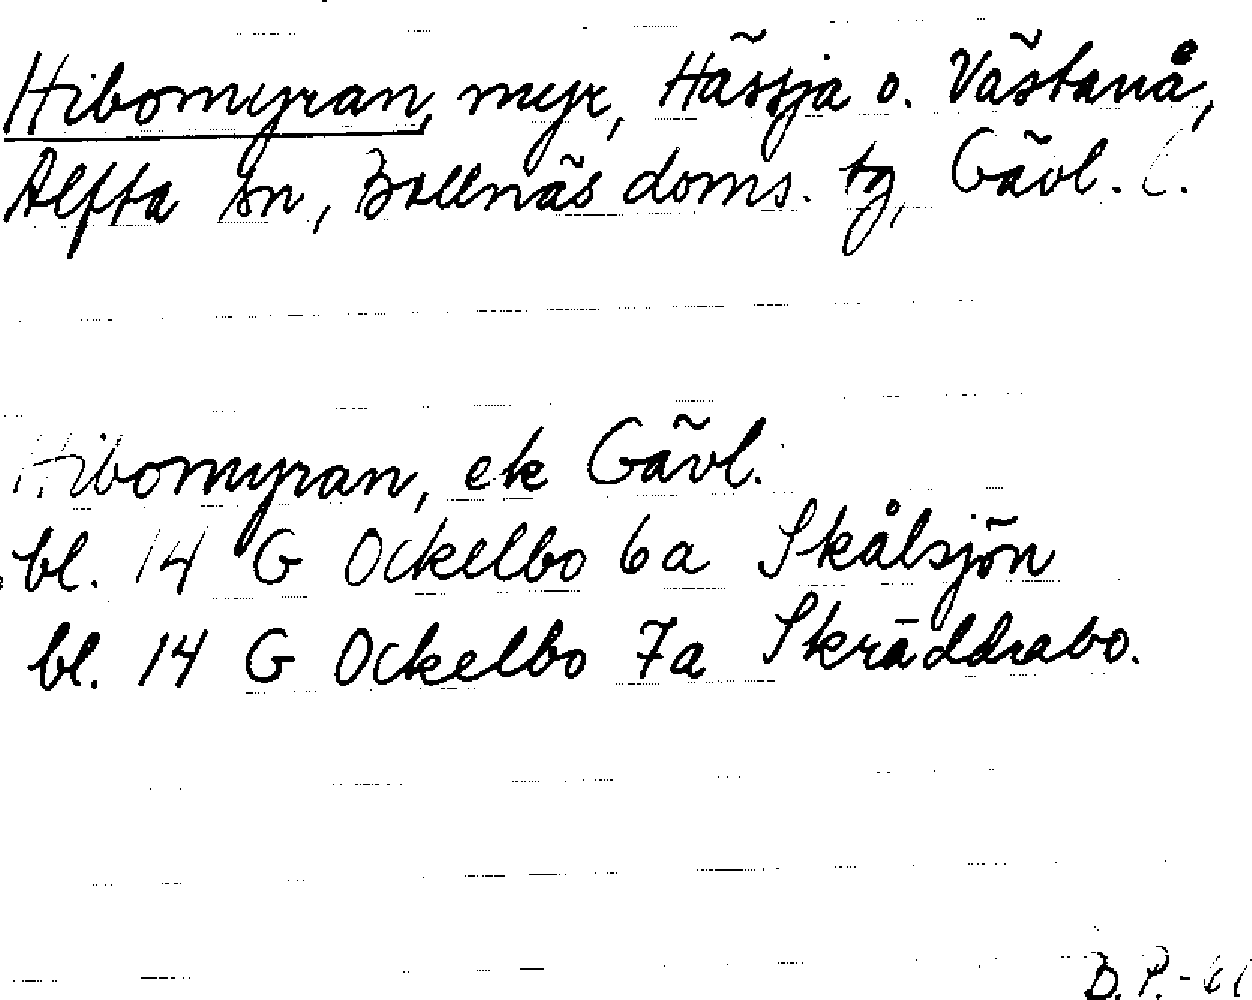 Hibomyran, myr, Hässja o. Västanå,
Alfta sn, Bollnäs doms. tg, Gävl. l.
Hibomyran, ek Gävl.
bl. 14 G Ockelbo 6a Skålsjön
bl. 14 G Ockelbo 7a Skräddrabo.
B. P. -